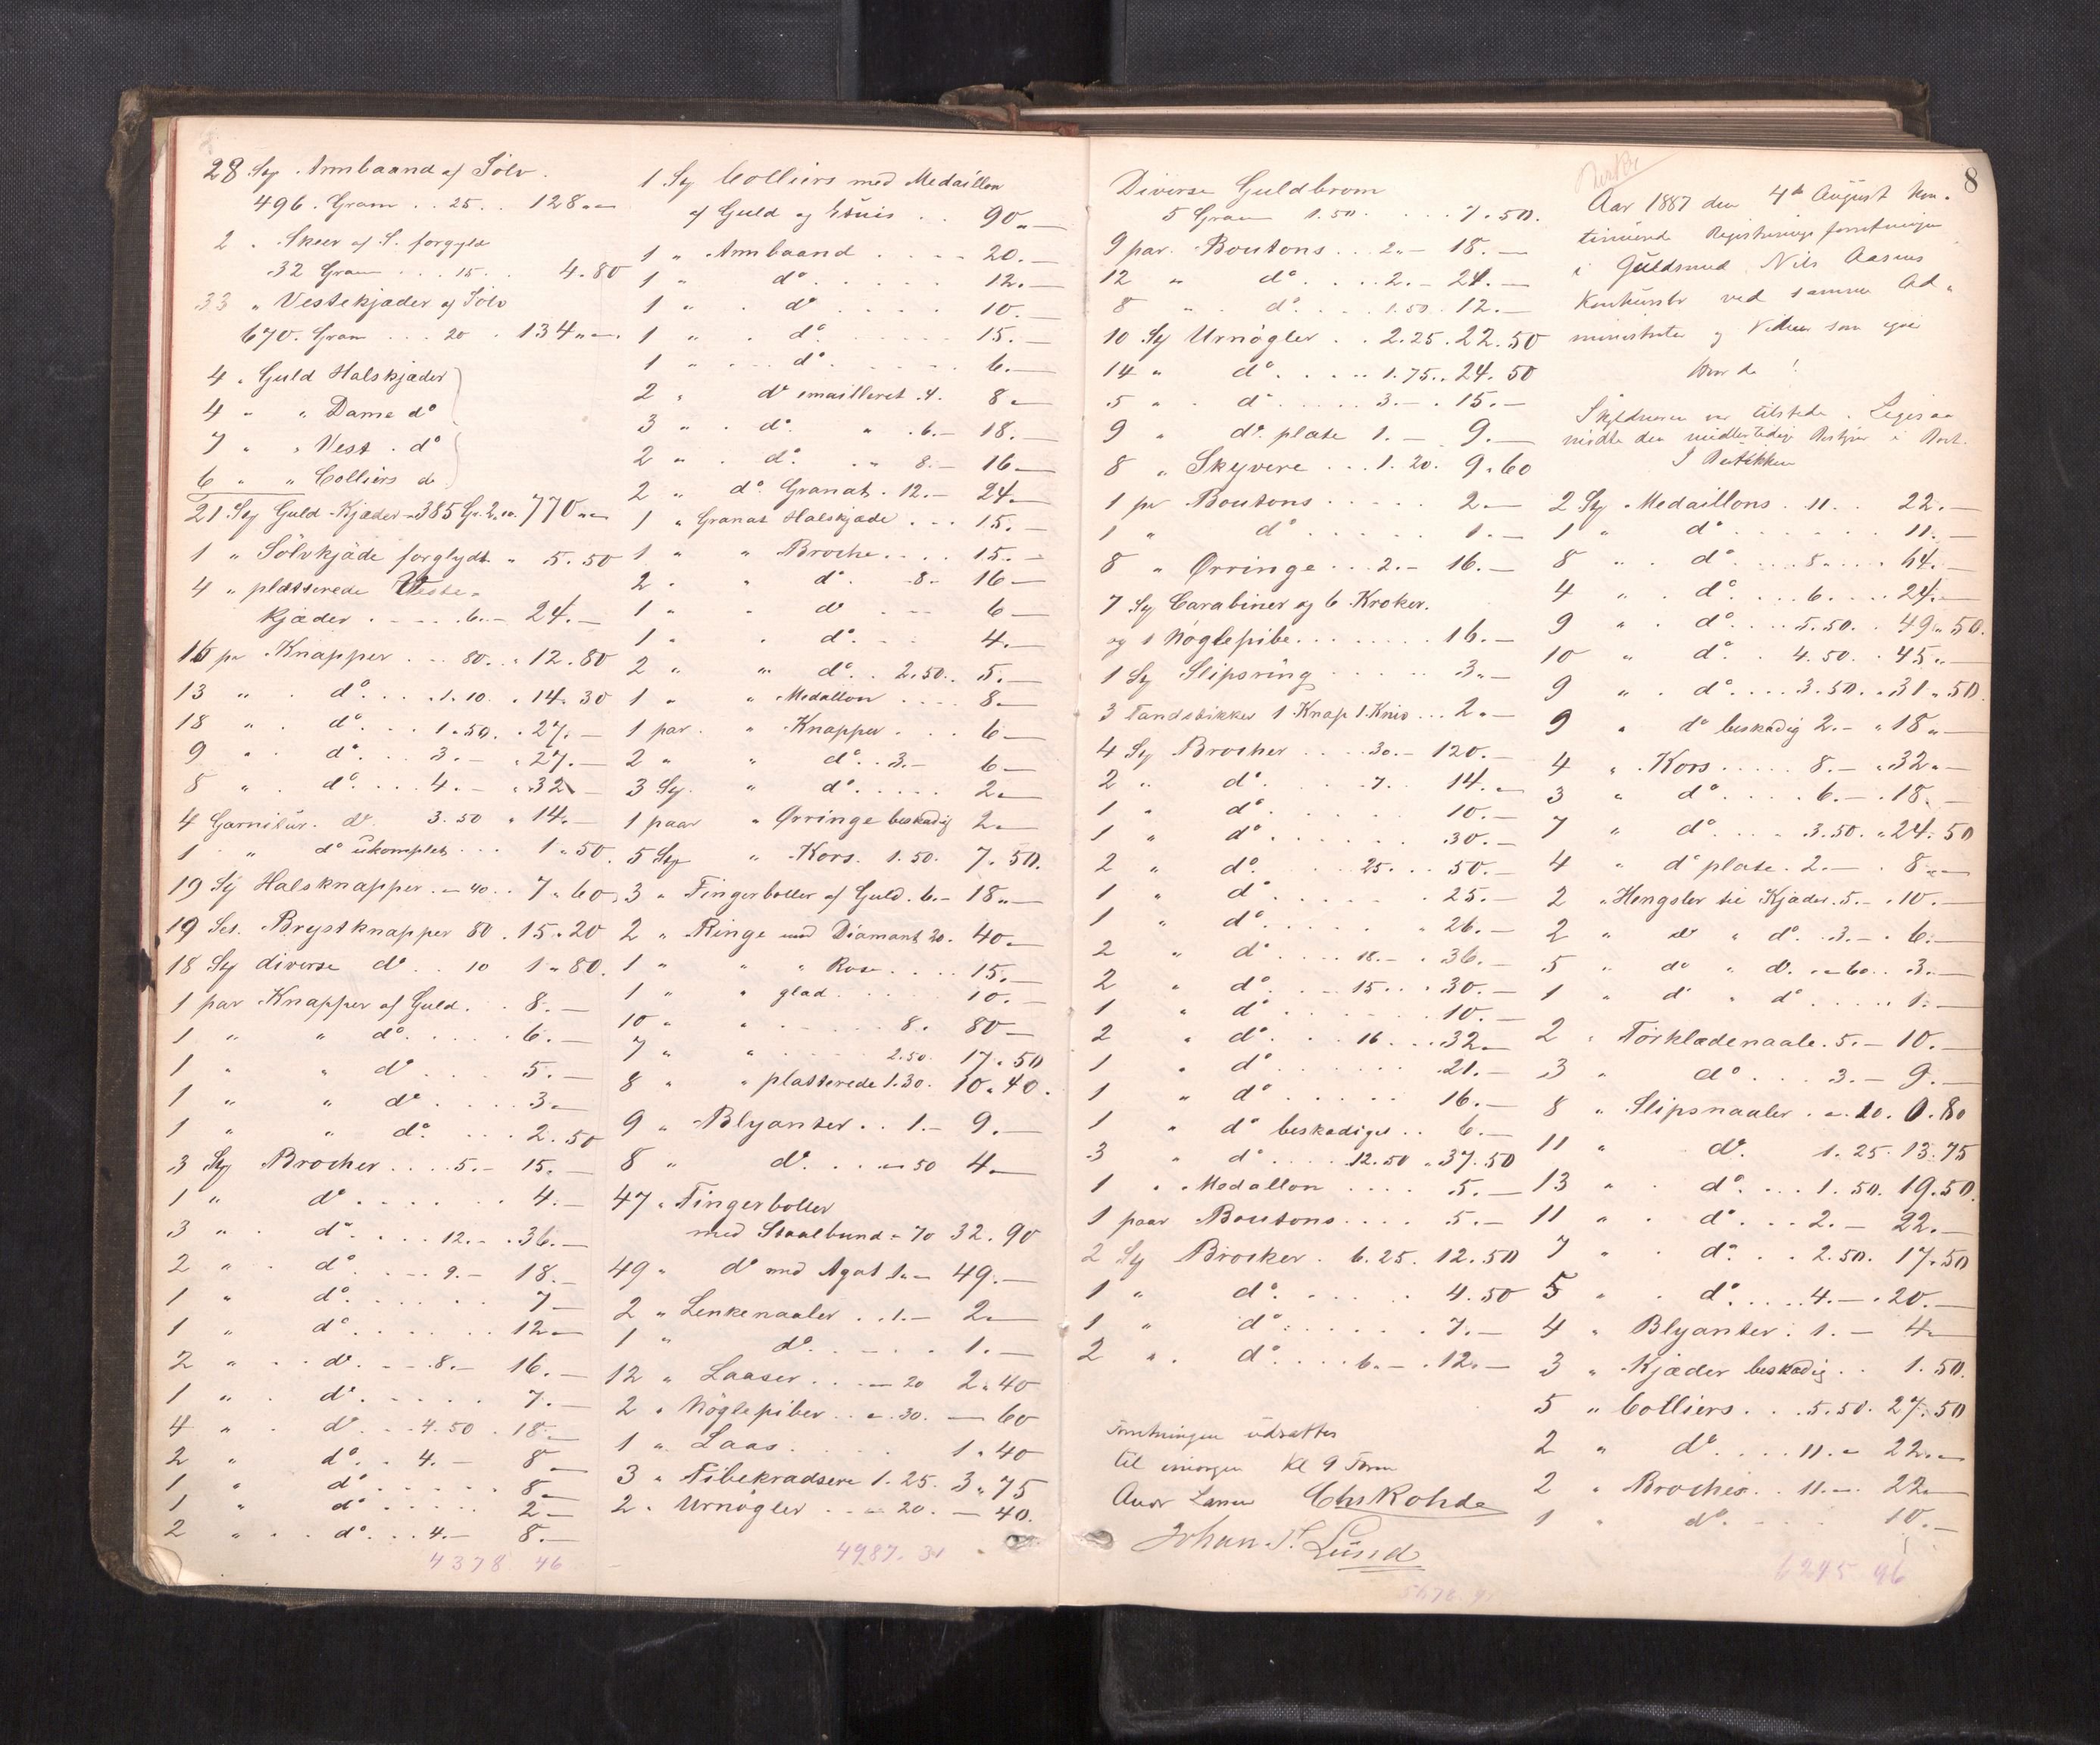 28 Stÿ Armbaand af Sölv.
496. Gram . . 25 . . 128 „ —
2 „ Skeer af S. forgyldt
32 Gram . . . 15 . . 4.80
33 „ Vestekjæder af Sölv
670. Gram . . . 20 . 134 „ —
4 „ Guld Halskjæder
4 „ „ Dame do
7 „ „ Vest. do
6 „ „ Colliers do
21 Stÿ Guld-Kjæder - 385 Gr. 2 „ 770 „ —
1 „ Sölvkjäde forglydt „ 5.50
4 „ plætterede Veste-
kjæder . . . . 6. — 24. —
16 pr Knapper . . . 80 . . 12.80
13 „ . do . . . 1.10 . 14.30
18 „ . do . . . 1.50 . . 27. —
9 „ . do . . . 3. — . 27. —
8 „ . do . . . 4. — . 32 —
4 Garnitür. do 3.50 „ 14. —
1 „ do ükomplet . . . 1.50.
19 Stÿ Halsknapper . „ 40 . . 7.60
19 Set. Brystknapper 80 . 15.20
18 Stÿ diverse do . . 10 1.80.
1 par Knapper af Guld . . 8. —
1 „ „ do . . . . . 6. —
1 „ „ do . . . 5. —
1 „ „ do . . . . 3 —
1 „ „ do . . . 2.50
3 Stÿ Brocher . . . . 5. — 15. —
1 „ do . . . . . . 4. —
3 „ . do . . . . 12. — . 36. —
2 „ . do . . . . 9. — 18. —
1 „ do . . . . . . 7 —
1 „ do . . . . . . 12 —
2 „ . . do . . . 8. — 16. —
1 „ . do . . . . . 7. —
4 „ . do . . . 4.50 . 18. —
2 „ do . . 4. — 8 —
1 „ do . . . . . 8 —
1 „ do . . . . . 2 —
2 „ . . do . . . 4. — 8. —
4378.46
1 Stÿ Colliers med Medaillon
af Guld og Etüis . . 90 „ —
1 „ Armbaand . . . . 20. —
1 „ do . . . . . . 12. —
1 „ . do . . . . . 10. —
1 „ . do . . . . . . 15. —
1 „ . . do . . . . . . 6. —
2 „ do emailleret . 4. 8 —
3 „ . do „ . 6. — 18. —
2 „ . do . „ 8. — 16 —
2 „ do Granat . 12. — 24 —
1 „ Granat Halskjæde . . . 15. —
1 „ „ Broche . . . . 15. —
2 „ „ do . 8 — 16 —
1 „ „ do . . . 6 —
1 „ „ do . . . 4 —
2 „ „ do . . 2.50 . . 5. —
1 „ „ Medallon . . . . 8 —
1 par . „ Knapper . . . 6 —
2 „ „ do . . 3. — 6 —
3 Stÿ. „ do . . . . . 2 —
1 paar „ Örringe beskadig 2 —
5 Stÿ „ Kors. 1.50. 7.50.
3 „ Fingerboller af Guld . 6. — 18 „ —
2 „ Ringe med Diamant 20. 40 —
1 „ „ „ Rose . . . . 15. —
1 „ „ glad . . . 10. —
10 „ „ . . . . . 8. 80 —
7 „ „ . . . . 2.50. 17.50
8 „ „ platterede 1.30. 10.40.
9 „ Blyanter . . 1. — 9. —
8 „ do . . . „ 50 4 —
47 „ Fingerboller
med Staalbund „ 70 32.90
49 „ do med Agat 1. — 49. —
2 „ Lenkenaaler . . 1. — 2 —
1 „ do . . . . . 1. —
12 „ Laaser . . . — 20 2.40
2 „ Nöglepiber . . „ 30. — 60
1 „ Laas . . . . . 1.40
3 „ Pibekradsere 1.25. 3.75
2 „ Urnögler . . . „ 20. — 40.
4987.31
Diverse Guldbrom
5 Gram 1.50. . . . 7.50.
9 par. Boutons . . . 2. — 18. —
12 „ do . . . . 2. — 24. —
8 „ . do . . . . 1.50 . 12. —
10 Stÿ Urnögler . . 2.25.22.50
14 „ do . . . . . 1.75 . . 24.50
5 „ . do . . . . . 3. — . 15. —
9 „ do plate 1. — 9. —
8 „ Skyvere . . . 1.20. 9.60
1 pr Boutons . . . . . 2. —
1 „ do . . . . . . 1. —
8 „ Örringe . . . 2. — 16. —
7 Stÿ Carabiner og 6 Kroker.
og 1 Nöglepibe . . . . . . . 16. —
1 Stÿ Slipsring . . . . . 3 „ —
3 Tandstikker 1 Knap 1 Kniv . . . 2. —
4 Stÿ Brocher . . . . 30. — 120. —
2 „ do . . . . 7 . . 14. —
1 „ do . . . . . . 10. —
1 „ do . . . . . . . 30. —
2 „ do . . . . 25 . . . 50. —
1 „ do . . . . . . 25. —
1 „ do . . . . . . 26. —
2 „ do . . . . 18. — . 36. —
2 „ do . . . 15 . . . 30. —
1 „ do . . . . . . 10. —
2 „ do . . . 16 . . . 32 —
1 „ do . . . . . . 21. —
1 „ do . . . . . 16. —
1 „ do beskadiget . . 6. —
3 „ do . . . . 12.50 „ 37.50
1 „ „ Medallon . . . . 5. —
1 paar Boutons . . . . 5. —
2 Stÿ Brocker . 6.25. 12.50
1 „ do . . . . . 4.50
1 „ do . . . . . . 7. —
2 „ . do . . . . 6. — . 12. —
Forretningen üdsættes
til imorgen Kl 9 Form
Andr Larsen Chs Rohde
Johan P. Lünd
5678.91
8
Aar 1887 den 4de August kon-
tinuerede Registreringsforretningen
i Güldsmed Nils Aasens
Konkursbo ved samme Ad-
ministrator og Vidner som igaar
Hvorda!
Skyldneren var tilstede. Ligesaa
mödte den midlertidige Bestyrer i Boet.
I Butikken
2 Stÿ Medaillons . 11 . . 22. —
1 „ do . . . . . . 11. —
8 „ . do . . . . 8 . . . . 64. —
4 „ . do . . . 6. . . . 24. —
9 „ . do . . . . 5.50 . . 49.50.
10 „ do . . 4.50. . 45 „ —
9 „ . do . . . . 3.50 . . 31.50.
9 „ do beskadig 2. — „ 18 „ —
4 „ . Kors . . . . . 8. — „ 32 „ —
3 „ do . . . . 6. — . 18. —
7 „ do . . . . 3.50. „ 24.50
4 „ do plate. 2. — . 8 „ —
2 „ Hengsler til Kjæder. 5. — . 10. —
2 „ do „ do . . 3. — . 6. —
5 „ do „ do . . „ 60 . . 3. —
1 „ do „ do . . . . . 1. —
2 „ Törklædenaale. 5. — 10. —
3 „ do . . . 3. — 9. —
8 „ Slipsnaaler . „ 10. 0.80
11 „ do 1.25.13.75
13 „ . do . . . 1.50. 19.50.
11 „ . do . . . 2. — 22. —
7 „ . do . . 2.50. 17.50
5 „ . do . . . . 4. — . 20. —
4 „ Blyanter . 1. — 4 —
3 „ Kjæder beskadig . . 1.50.
5 „ Colliers . . . 5.50. 27.50
2 „ do . . . . 11. — 22 „ —
2 „ Broches . . 11. — 22 —
1 „ do . . . . . 10. —
6295.96